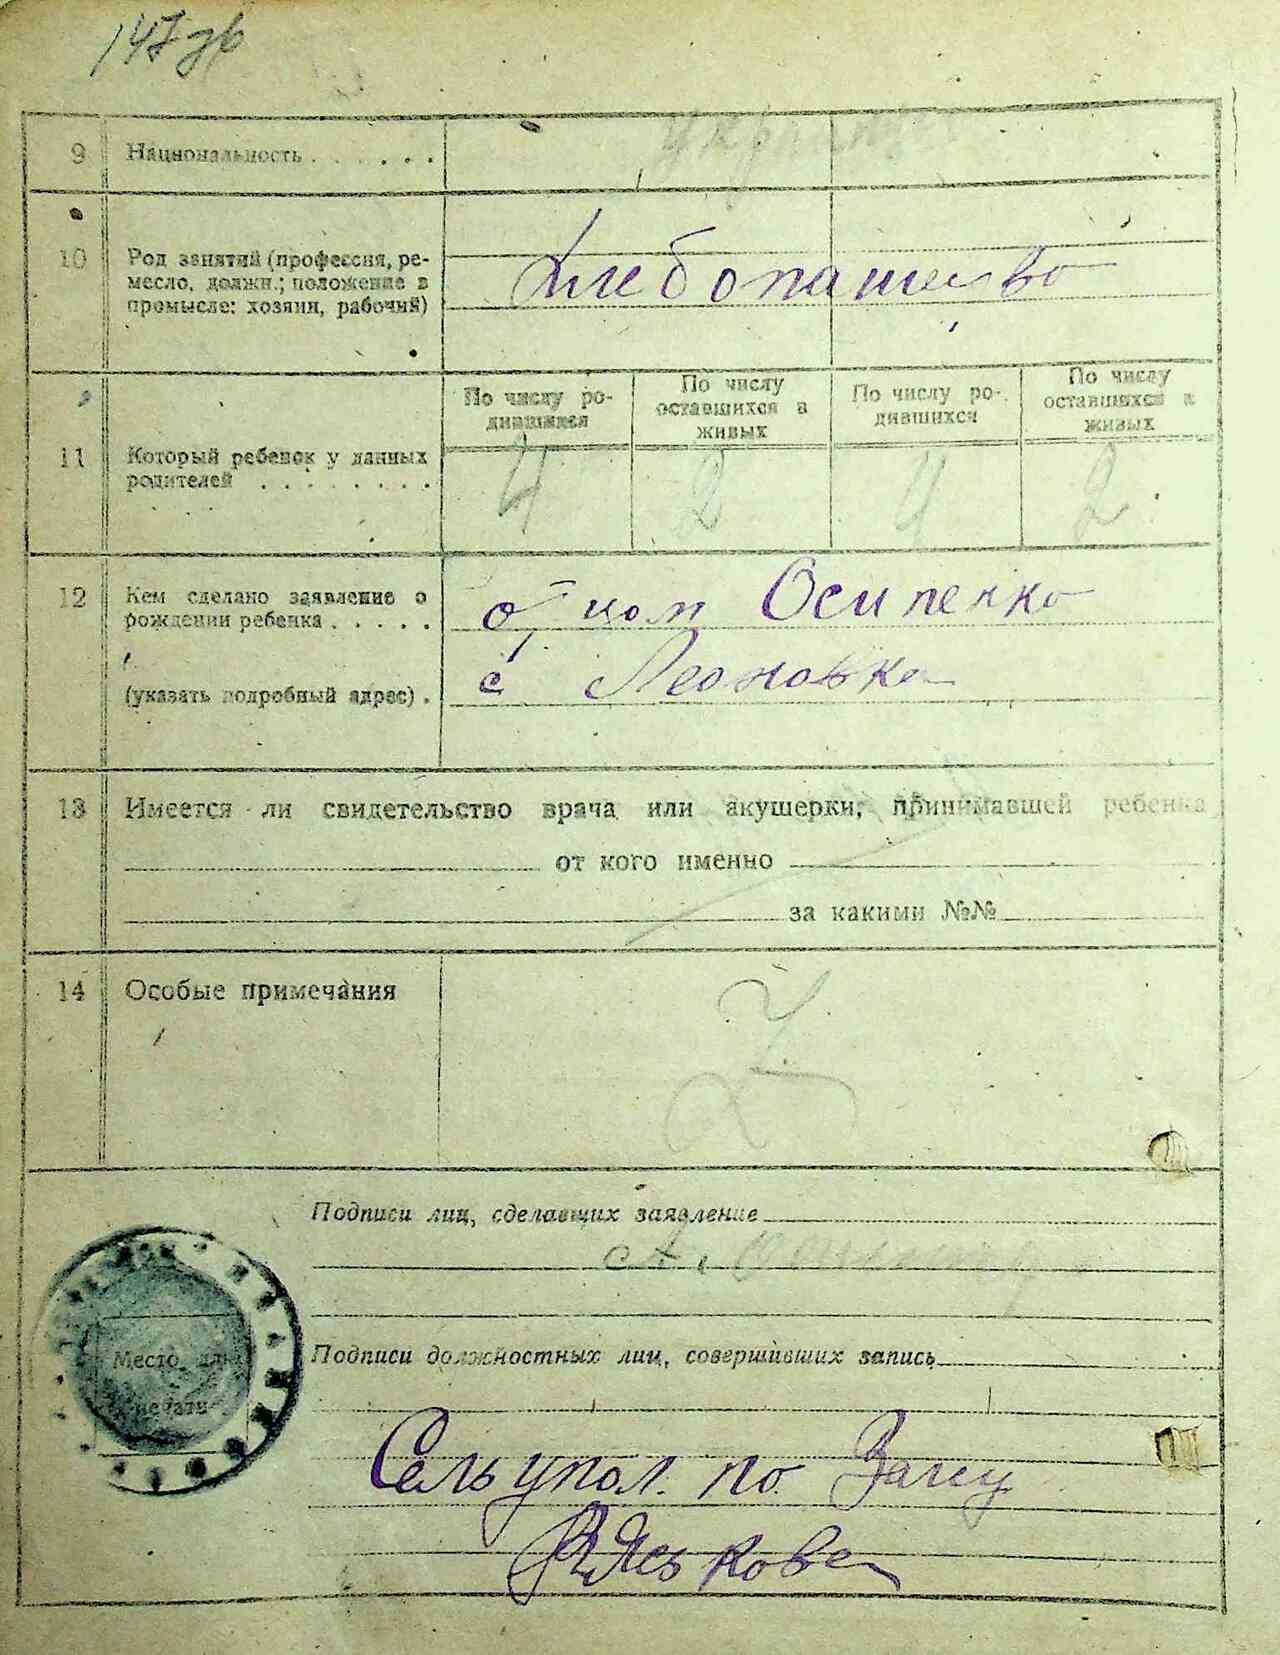 147 зв
9 Национальность . . . . . .
10 Род занятий (профессия, ре-
месло, должн.; положение в
промысле: хозяин, рабочий)
Хлебопашество
По числу ро-
дившихся
По числу
оставшихся в
живых
По числу ро-
дившихся
По числу
оставшихся в
живых
11 Который ребенок у данных
родителей . . . . . . . .
4 2 4 2
12 Кем сделано заявление о
рождении ребенка . . . . .
отцом Осипенко
(указать подробный адрес) .
с Леоновка
13 Имеется ли свидетельство врача или акушерки, принимавшей ребенка
от кого именно
за какими №№
14 Особые примечания
Подписи лиц, сделавших заявление
Место для
печати
Подписи должностных лиц, совершивших запись
Сельупол. по Загсу